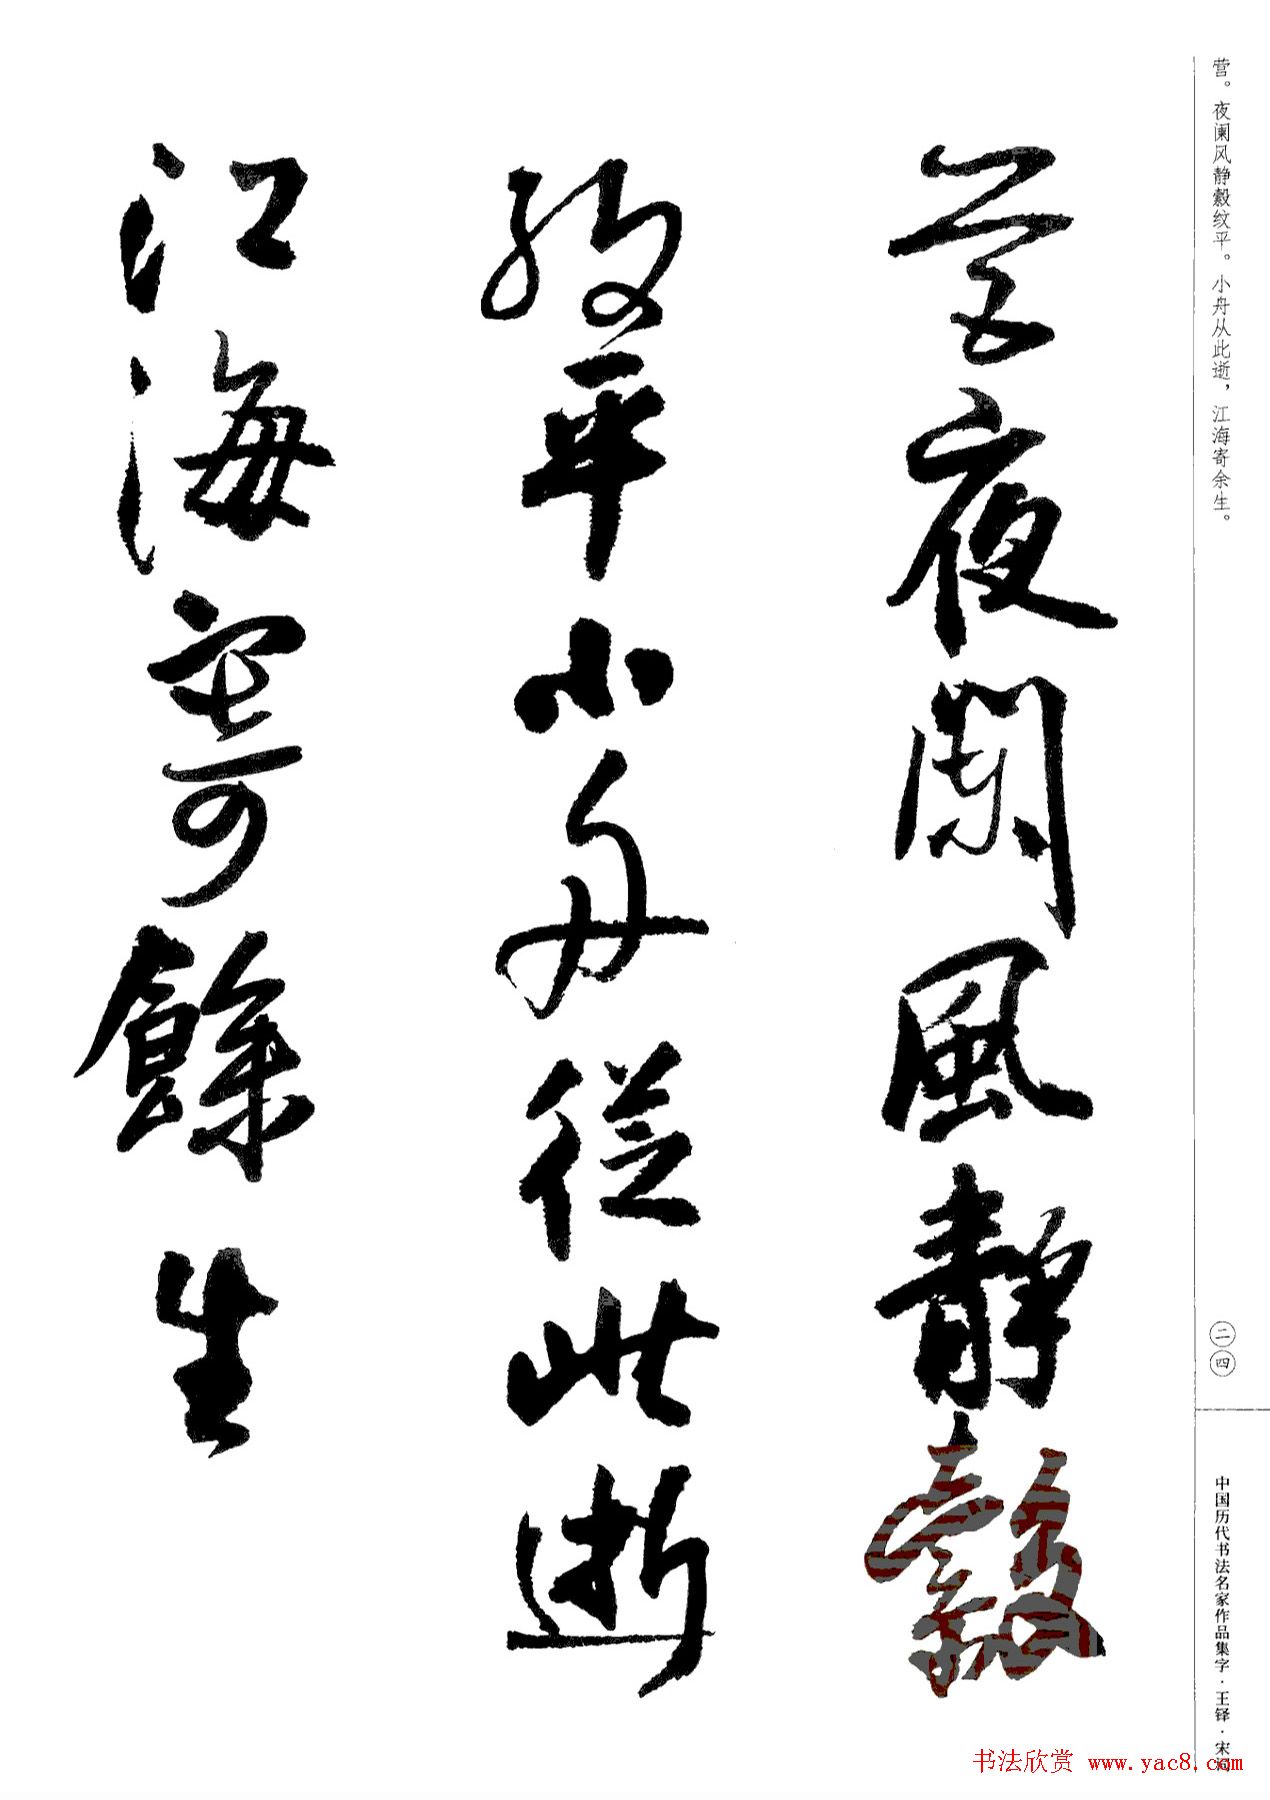 营。夜阑风静縠纹平。小舟从此逝，江海寄余生。
二四
中国历代书法名家作品集字·王铎·宋词
营夜闌風靜縠
紋平小舟從此逝
江海寄餘生
书法欣赏 www.yac8.com